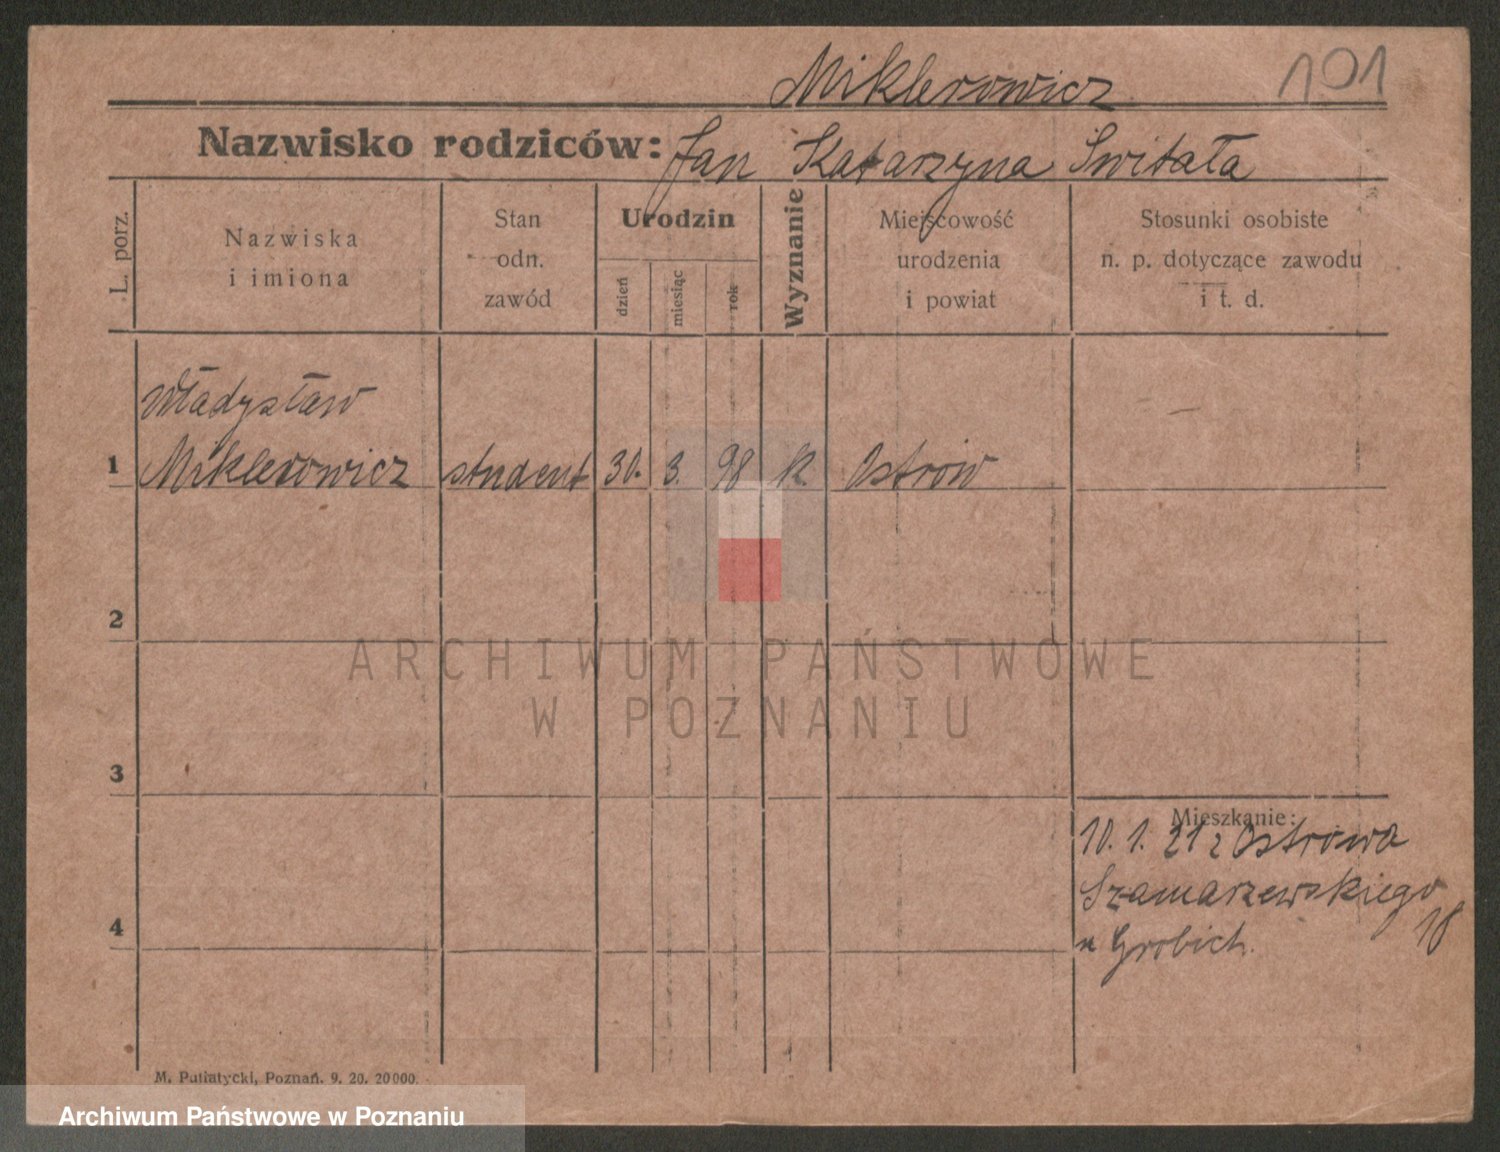 Miklerowicz 101
Nazwisko rodziców: Jan Katarzyna Świtała
L. porz.
Nazwiska
i imiona
Stan
odn.
zawód
Urodzin
dzień
miesiąc
rok
Wyznanie
Miejscowość
urodzenia
i powiat
Stosunki osobiste
n. p. dotyczące zawodu
i t. d.
Władysław
1 Miklerowicz student 30. 3. 98 k. Ostrów
2
ARCHIWUM PAŃSTWOWE
W POZNANIU
3
Mieszkanie:
10. 1. 21 z Ostrowa
Szamarzewskiego
18
u Grobich.
4
M. Putiatycki, Poznań. 9. 20. 20000.
Archiwum Państwowe w Poznaniu